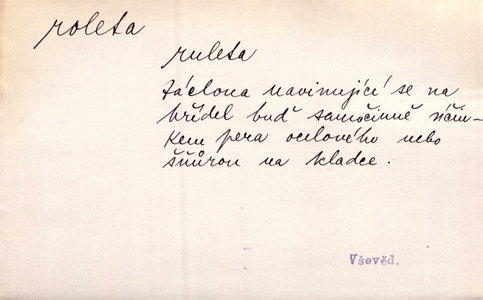 roleta
ruleta
záclona navinující se na
hřídel buď samočinně účin-
kem pera ocelového nebo
šňůrou na kladce.
Vševěd.